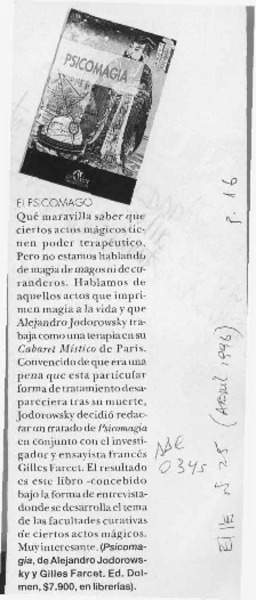 PSICOMAGIA
El PSICOMAGO
Qué maravilla saber que
ciertos actos mágicos tie-
nen poder terapéutico.
Pero no estamos hablando
de magia de magos ni de cu-
randeros. Hablamos de
aquellos actos que impri-
men magia a la vida y que
Alejandro Jodorowsky tra-
baja como una terapia en su
Cabaret Místico de París.
Convencido de que era una
pena que esta particular
forma de tratamiento desa-
pareciera tras su muerte,
Jodorowsky decidió redac-
tar un tratado de Psicomagia
en conjunto con el investi-
gador y ensayista francés
Gilles Farcet. El resultado
es este libro -concebido
bajo la forma de entrevista-
donde se desarrolla el tema
de las facultades curativas
de ciertos actos mágicos.
Muy interesante. (Psicoma-
gia, de Alejandro Jodorows-
ky y Gilles Farcet. Ed. Dol-
men, $7.900, en librerías).
P. 16
Elle N° 25 (Abril 1996)
0345